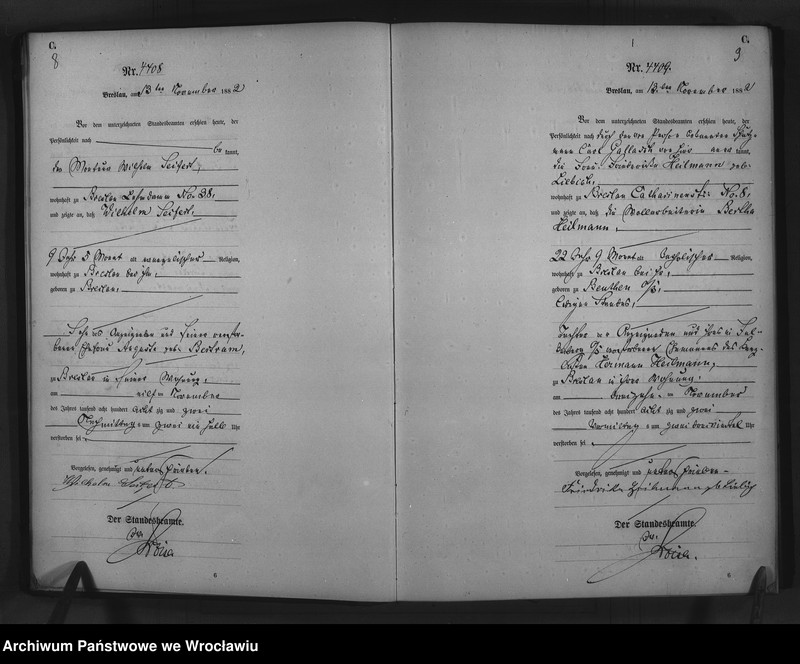 C.
8
Nr. 4408
Breslau, am 13ten November 1882
Vor dem unterzeichneten Standesbeamten erschien heute, der
Persönlichkeit nach
be kannt,
der Wilhelm Seifert,
wohnhaft zu Breslau Lehmdamm No. 38,
und zeigte an, daß Wilhelm Seifert,
9 Jahr 5 Monat alt evangelischer Religion,
wohnhaft zu Breslau bei ihm,
geboren zu Breslau,
Sohn des Anzeigenden und seiner verstor-
benen Ehefrau Auguste geb. Bertram,
zu Breslau in seiner Wohnung,
am elften November
des Jahres tausend acht hundert achtzig und zwei
Nachmittag um zwei ein halb Uhr
verstorben sei.
Vorgelesen, genehmigt und unterschrieben.
Wilhelm Seifert
Der Standesbeamte.
6
C.
9
Nr. 4409.
Breslau, am 13ten November 1882
Vor dem unterzeichneten Standesbeamten erschien heute, der
Persönlichkeit nach durch den von Person bekannten
mann Carl aner kannt,
die Friederike Heilmann geb.
Liebich,
wohnhaft zu Breslau Catharinenstr. No. 8,
und zeigte an, daß die Wollarbeiterin Bertha
Heilmann,
22 Jahr 9 Monat alt katholischer Religion,
wohnhaft zu Breslau bei ihr,
geboren zu Beuthen O/S,
ledigen Standes,
Tochter der Anzeigenden und ihres in
verstorbenen Ehemannes des
Hermann Heilmann,
zu Breslau in ihrer Wohnung,
am dreizehnten November
des Jahres tausend acht hundert achtzig und zwei
Vormittag um zwei drei viertel Uhr
verstorben sei.
Vorgelesen, genehmigt und unterschrieben
Friedrike Heilmann geb Liebich
Der Standesbeamte.
6
Archiwum Państwowe we Wrocławiu